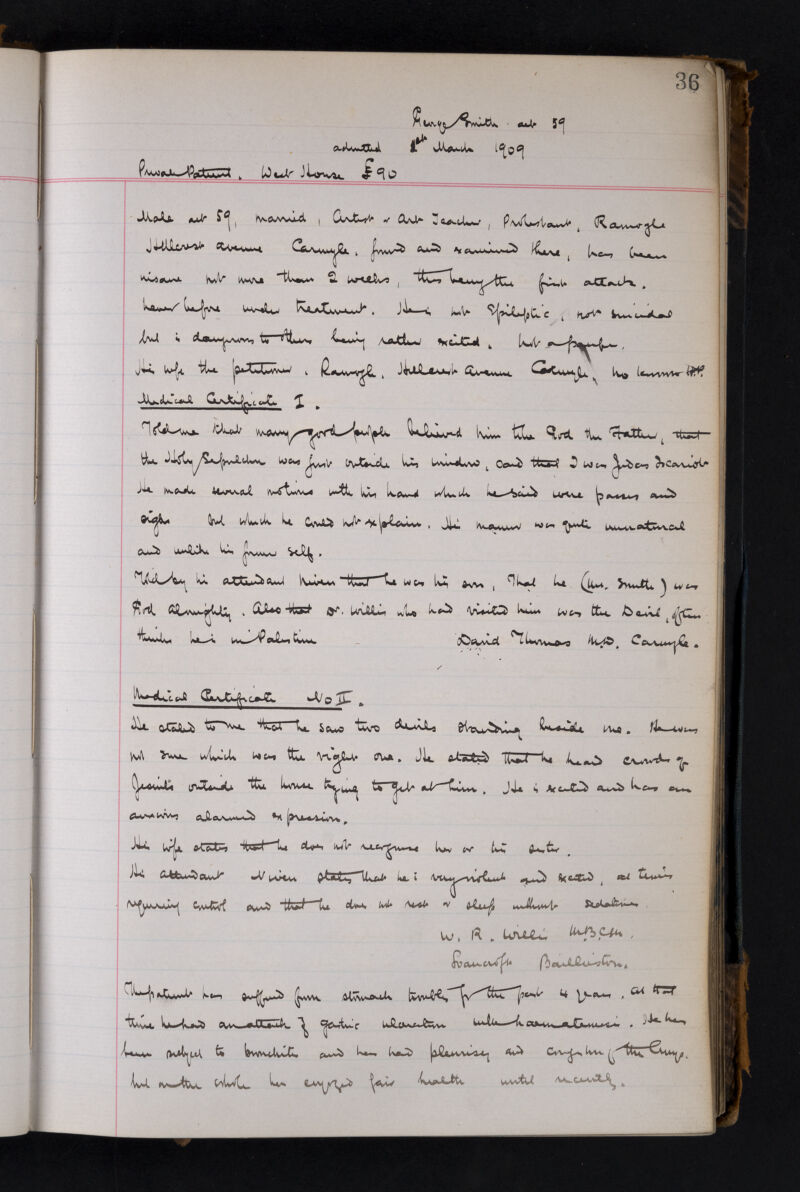 36
George Smith aet 59
admitted 1st March 1909
Private Patient. West House £90
Male aet 59, married, Artist & Art Teacher, Protestant,
Hillcrest Avenue Carmyle. found and examined there, has been
insane not more than 2 weeks, this being the first attack.
never before under treatment. He is not Epileptic, not suicidal
but is dangerous to others being rather excited. Not a pauper.
His wife the petitioner. Hillcrest Avenue Carmyle, no known
Medical Certificate I.
Told me that many good people believed him the God the Father, that
the Holy Sepulchre was just outside his window, said that I was Judas Iscariot
He made several motions with his hand which he said were passes and
signs but which he could not explain. His manner was quite unnatural
and unlike his former self.
Told by his attendant Niven that he was his son, That he (Mr. Smith) was
God Almighty. Also that Dr. Willis who had visited him was the Devil, often
thinks he is in Palestine David Thomas M.D. Carmyle.
Medical Certificate No II.
He stated to me that he saw two devils standing beside me. He was
not sure which was the right one. He stated that he heard crowds of
Jesuits outside the house trying to get at him. He is excited and has an
anxious alarmed expression.
His wife states that he does not recognise her or his sister.
His attendant Niven states that he is very violent and excited, at times
requiring control and that he does not rest or sleep without sedatives
W. R. Willis M.B.C.M.
Baillieston.
The patient has suffered from stomach troubles for the past 4 years. At that
time he had an attack of gastric ulceration with haematemesis. He has
been subject to bronchitis and has had pleurisy and congestion of the lungs.
but on the whole has enjoyed fair health until recently.